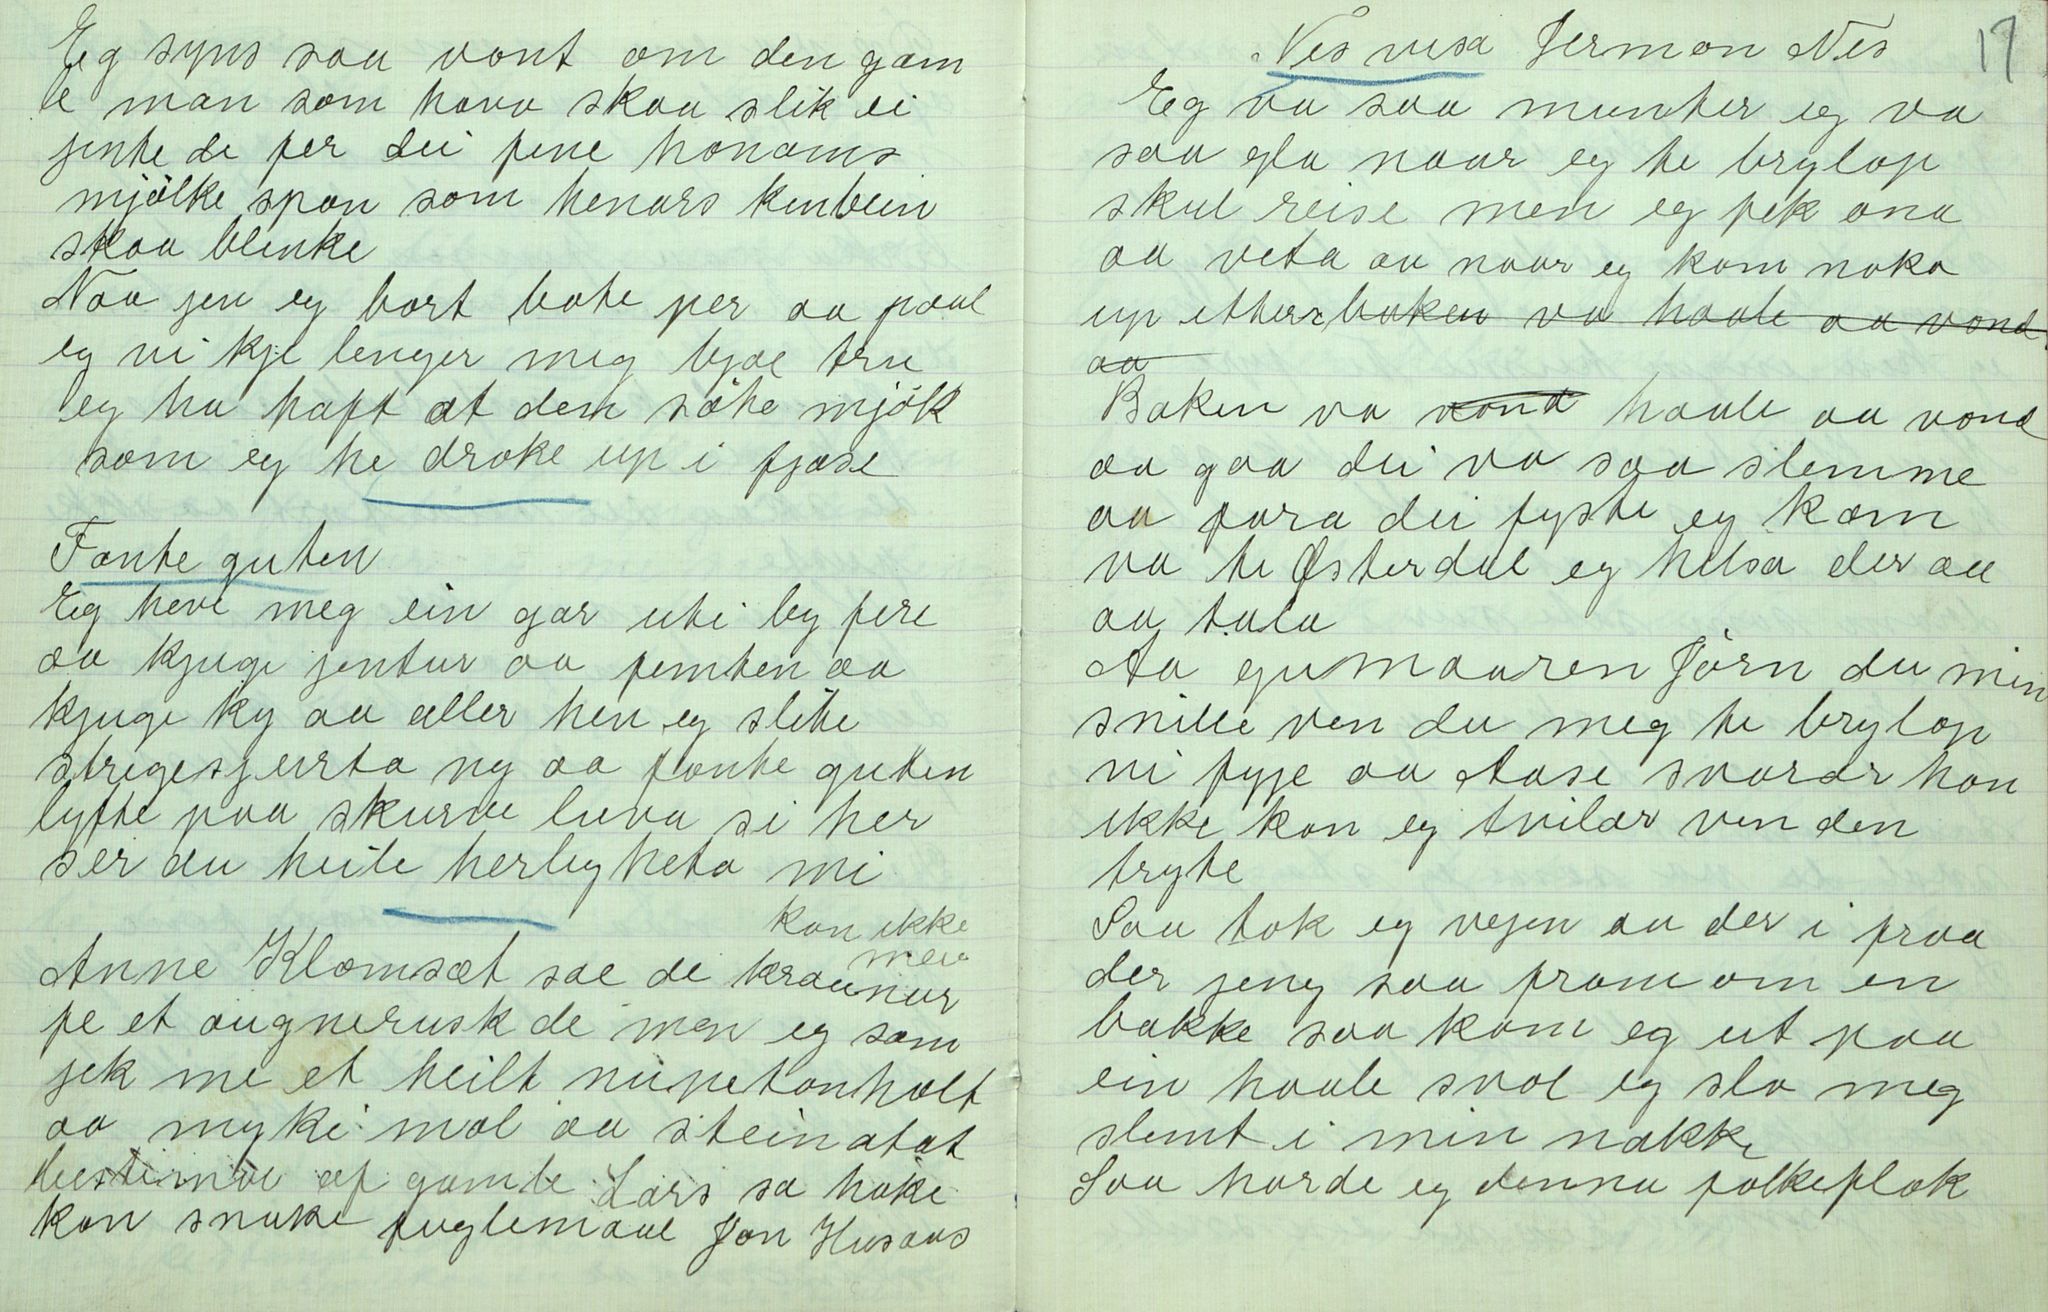 Eg syns saa vont om den gam
le man som hava skaa slik ei
jente de fer dei fine honoms
mjölke spon som henars kinbein
skaa blinke
Naa jen eg bort bote per aa paal
eg vi kje lenger meg byae tru
eg ha haft at den söte mjölk
som eg he droke up i fjose
Fante guten
Eg heve meg ein gar uti by fire
aa kjuge jentur aa femten aa
kjuge ky aa aller hen eg slite
strigesjurta ny aa fante guten
lyfte paa skurve luva si her
ser du heile herlygheta mi
kan ikke
men
Anne Klomsæt sae de kraunur
fe et augnerusk de men eg som
fek me et heilt nupetonholt
aa myki mol aa stein atat
af gamle Lars sa hake
kan snake fuglemaal Jon Husaas
17
Nes visa Jermon Nes
Eg va saa munter eg va
saa gla naar eg te brylop
skul reise men eg fek ana
aa veta aa naar eg kom noka
up etterr baken va haale aa vond
aa
Baken va vond haale aa vond
aa gaa dei va saa slemme
aa fara dei fyste eg kom
va te Østerdal eg helsa der aa
aa tala
Aa gumaaren Jörn du min
snille ven du meg te brylop
vi fyje aa Aase svarar han
ikke kan eg tvilar ven den
tryte
Saa tok eg vejen aa der i fraa
der jeng saa fram om en
bakke saa kom eg ut paa
ein haale svol eg slo meg
slemt i min nakke
Saa horde eg denna folkeflok